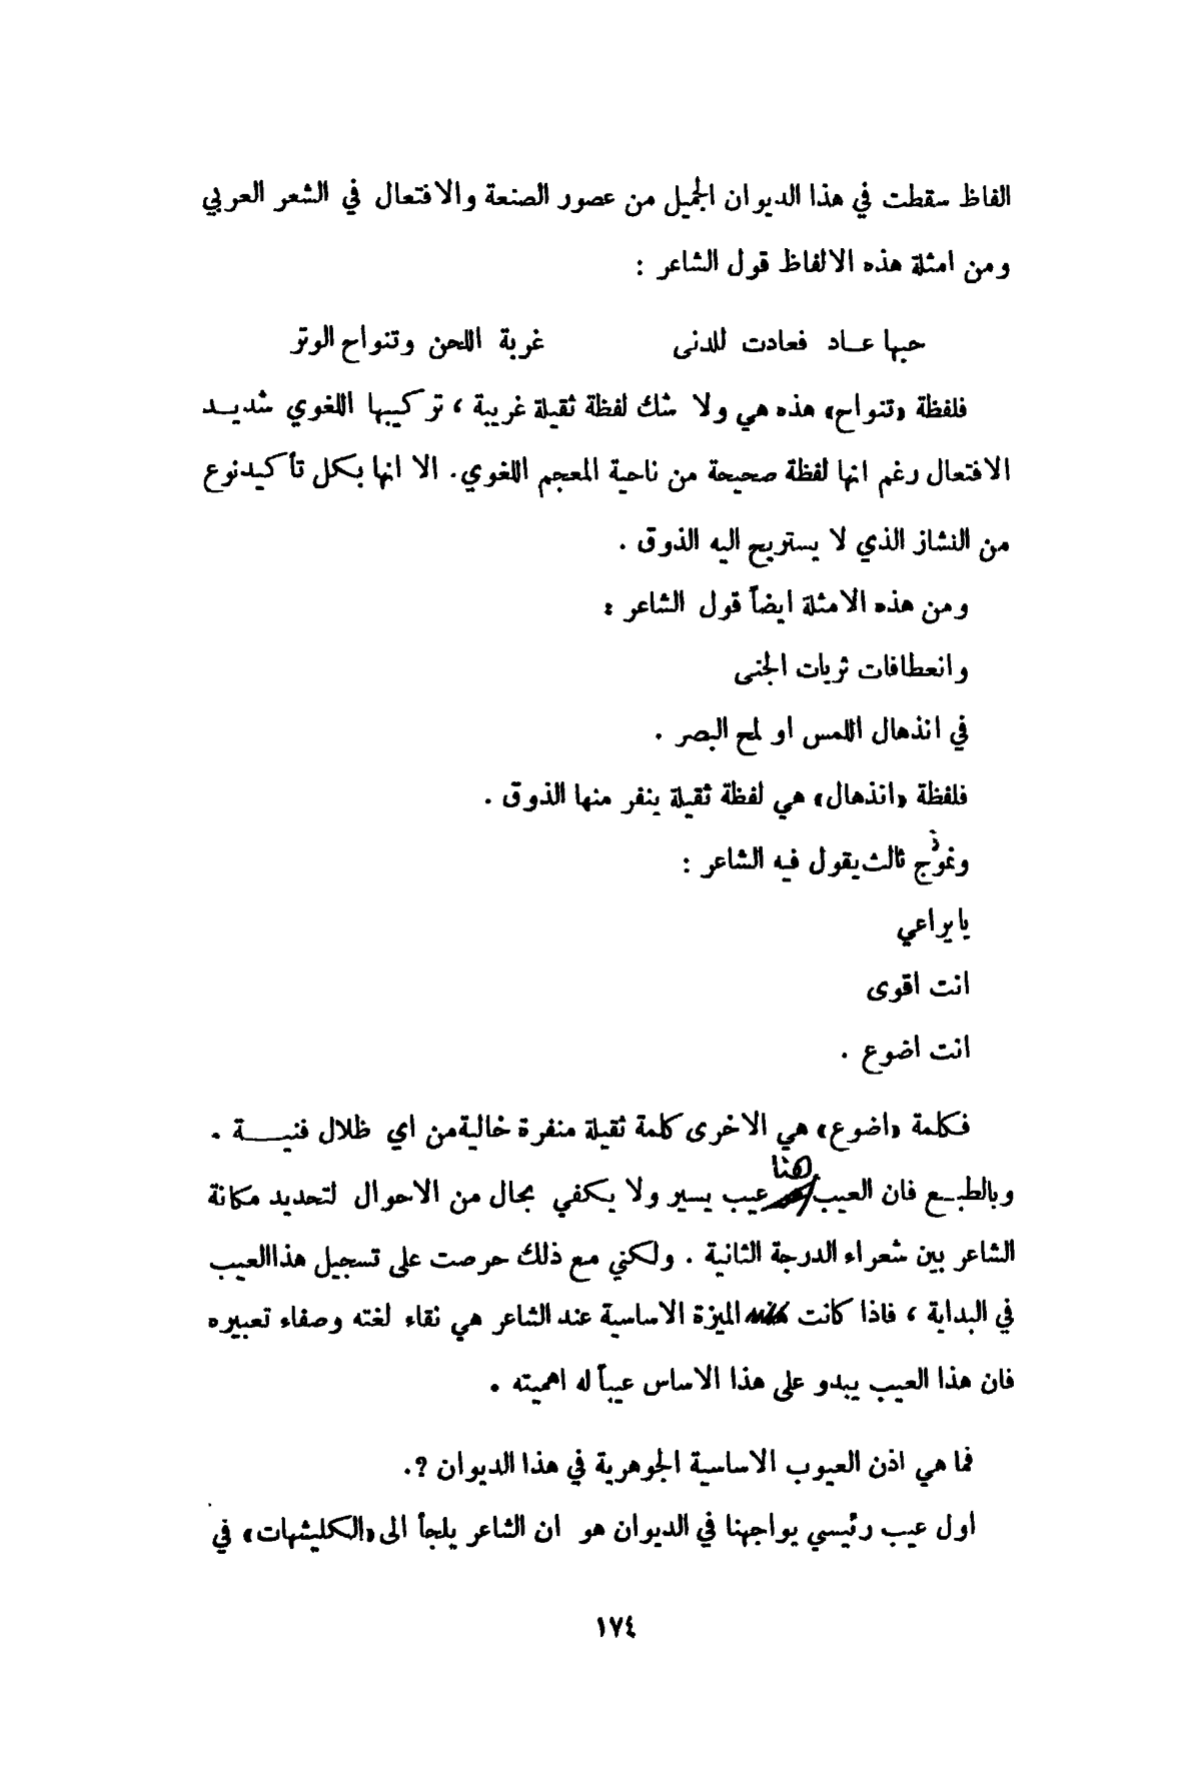 الفاظ سقطت في هذا الديوان الجميل من عصور الصنعة والافتعال في الشعر العربي
ومن امثلة هذه الالفاظ قول الشاعر :
حبها عــاد فعادت للدنى غربة اللحن وتنواح الوتر
فلفظة «تنواح» هذه هي ولا شك لفظة ثقيلة غريبة ، تركيبها اللغوي شديــد
الافتعال رغم انها لفظة صحيحة من ناحية المعجم اللغوي. الا انها بكل تأكيدنوع
من النشاز الذي لا يستريح اليه الذوق .
ومن هذه الامثلة ايضاً قول الشاعر :
وانعطافات ثريات الجنى
في انذهال اللمس او لمح البصر .
فلفظة «انذهال» هي لفظة ثقيلة ينفر منها الذوق .
ونموذج ثالث يقول فيه الشاعر :
يا يراعي
انت اقوى
انت اضوع .
فكلمة «اضوع» هي الاخرى كلمة ثقيلة منفرة خالية من اي ظلال فنيــــة .
وبالطبــع فان العيب هنا عيب يسير ولا يكفي بحال من الاحوال لتحديد مكانة
الشاعر بين شعراء الدرجة الثانية . ولكني مع ذلك حرصت على تسجيل هذا العيب
في البداية ، فاذا كانت الميزة الاساسية عند الشاعر هي نقاء لغته وصفاء تعبيره
فان هذا العيب يبدو على هذا الاساس عيباً له اهميته .
فما هي اذن العيوب الاساسية الجوهرية في هذا الديوان ؟.
اول عيب رئيسي يواجهنا في الديوان هو ان الشاعر يلجأ الى «الكليشهات» في
١٧٤